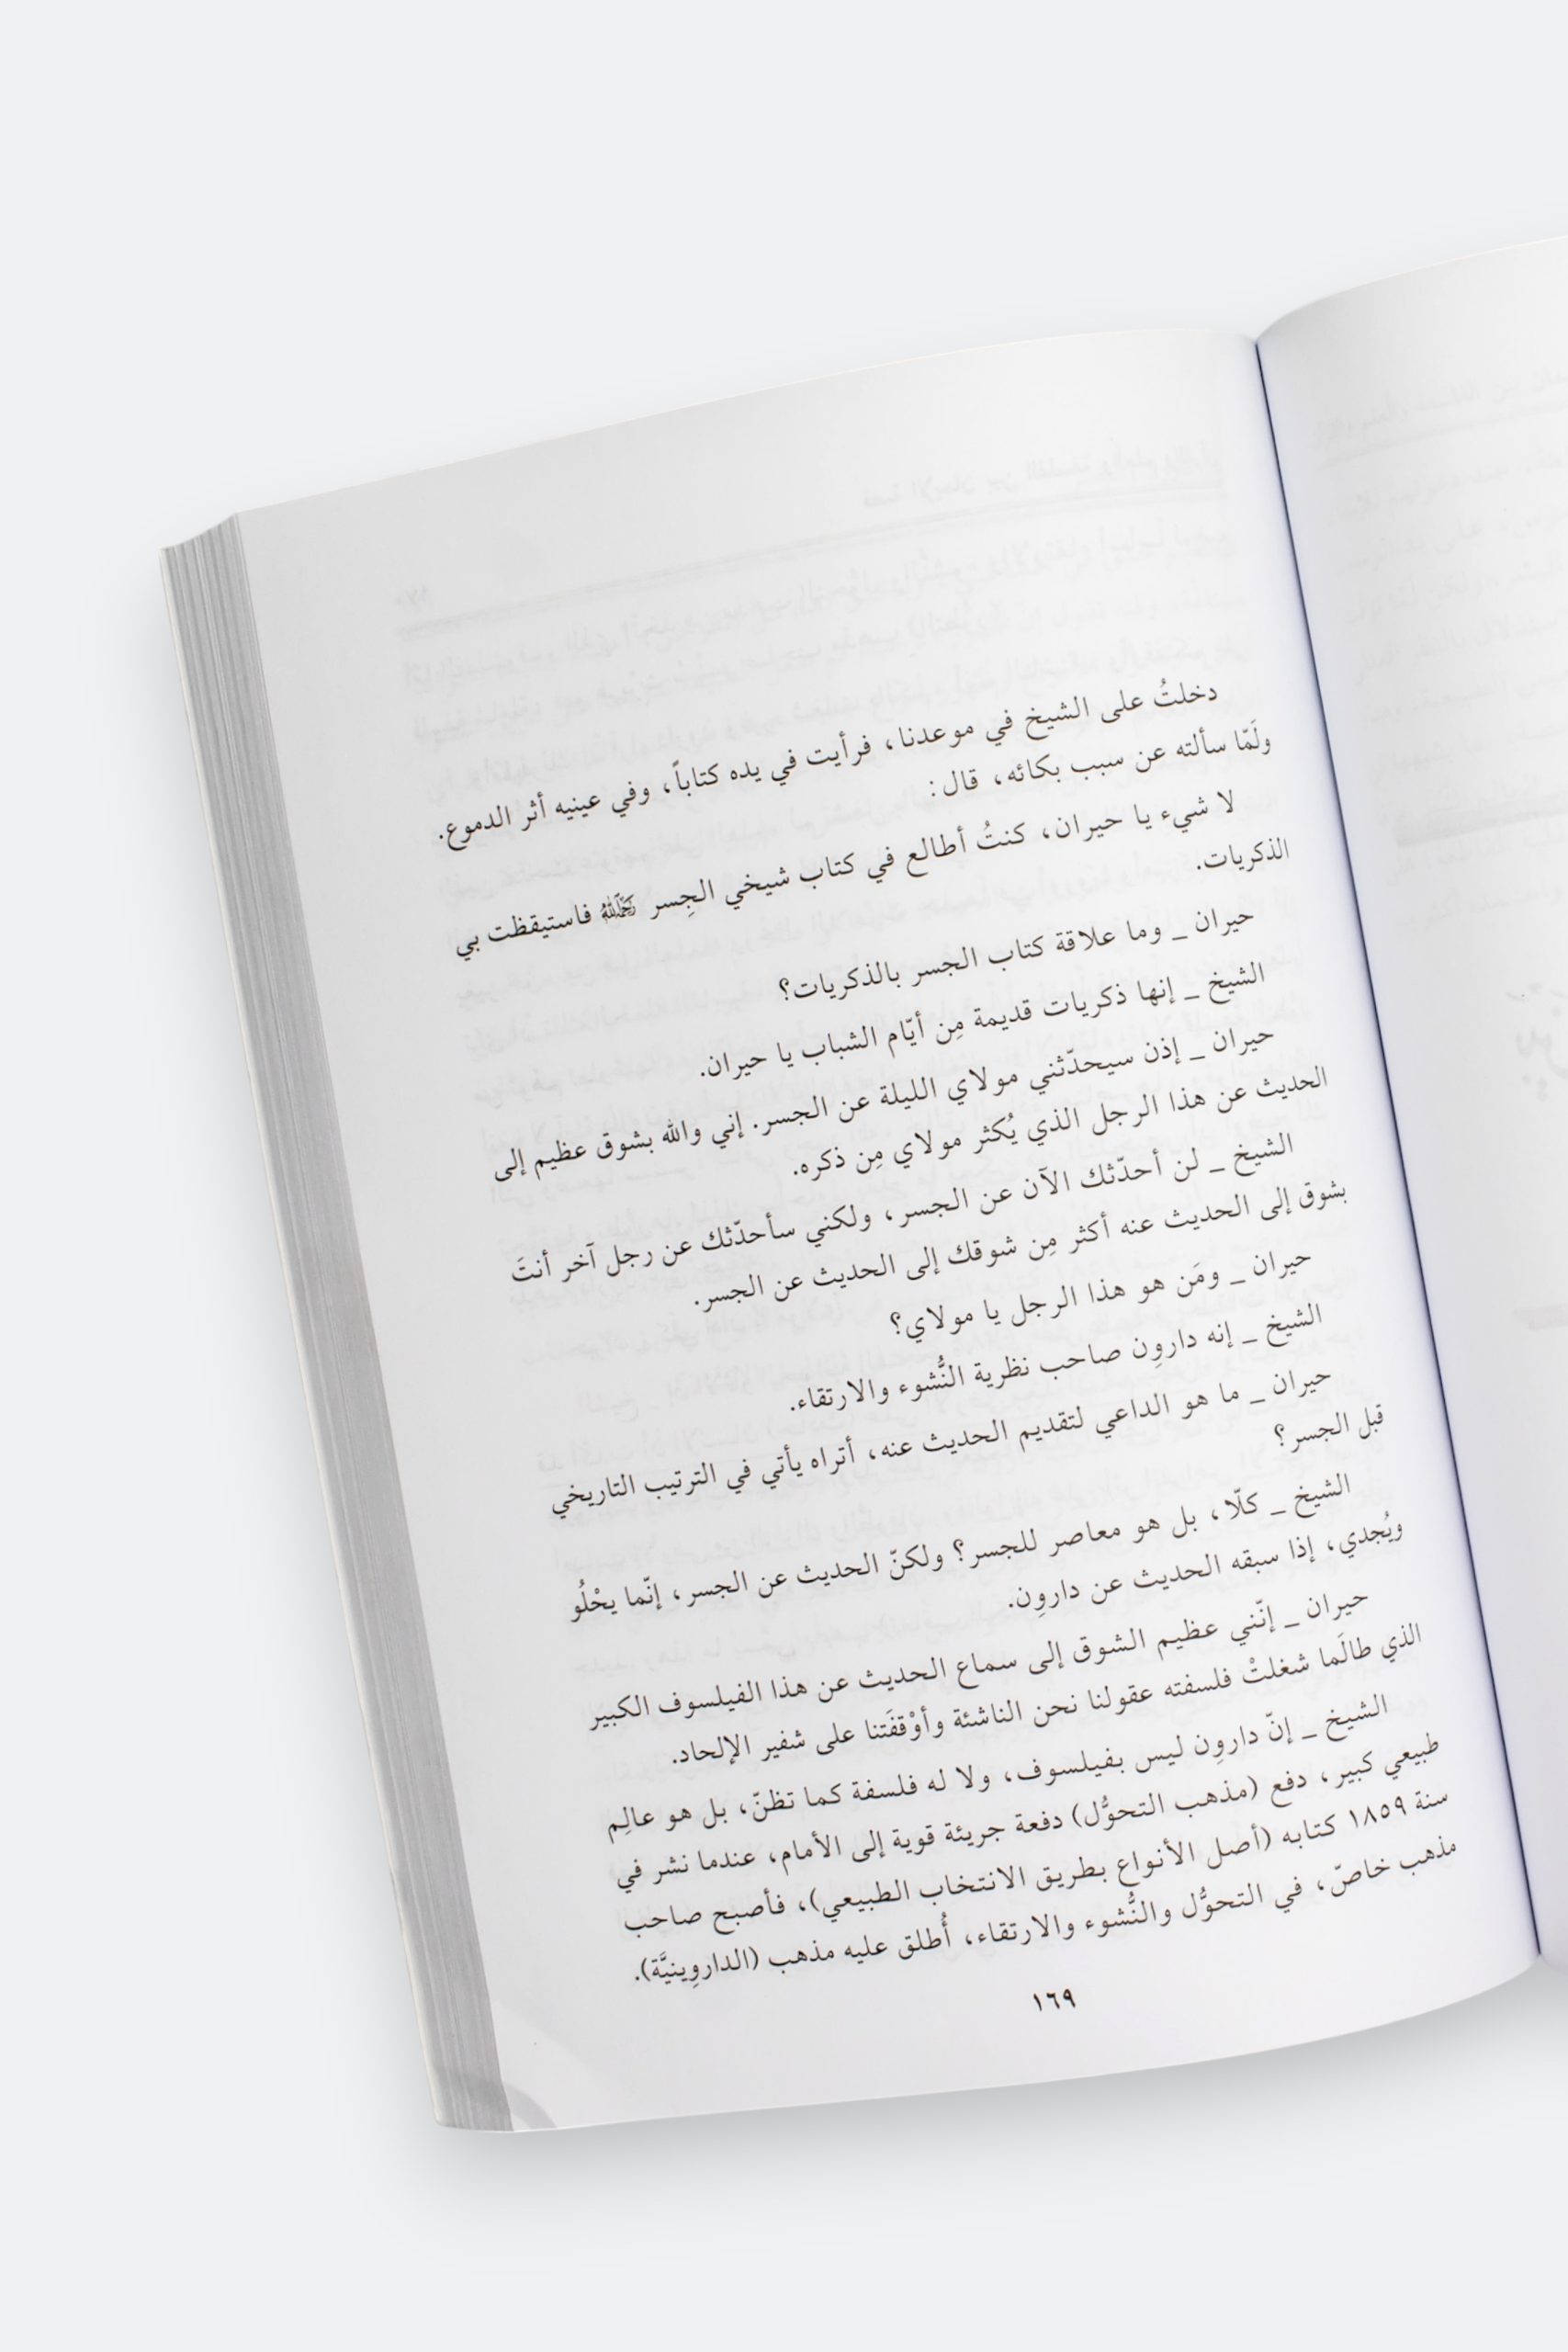 دخلتُ على الشيخ في موعدنا، فرأيت في يده كتاباً، وفي عينيه أثر الدموع.
ولَمّا سألته عن سبب بكائه، قال:
لا شيء يا حيران، كنتُ أطالع في كتاب شيخي الجِسر رَحِمَهُ اللهُ فاستيقظت بي
الذكريات.
حيران _ وما علاقة كتاب الجسر بالذكريات؟
الشيخ _ إنها ذكريات قديمة مِن أيّام الشباب يا حيران.
حيران _ إذن سيحدّثني مولاي الليلة عن الجسر. إني والله بشوق عظيم إلى
الحديث عن هذا الرجل الذي يُكثر مولاي مِن ذكره.
الشيخ _ لن أحدّثك الآن عن الجسر، ولكني سأحدّثك عن رجل آخر أنتَ
بشوق إلى الحديث عنه أكثر مِن شوقك إلى الحديث عن الجسر.
حيران _ ومَن هو هذا الرجل يا مولاي؟
الشيخ _ إنه داروِن صاحب نظرية النُّشوء والارتقاء.
حيران _ ما هو الداعي لتقديم الحديث عنه، أتراه يأتي في الترتيب التاريخي
قبل الجسر؟
الشيخ _ كلّا، بل هو معاصر للجسر؟ ولكنّ الحديث عن الجسر، إنّما يحْلُو
ويُجدي، إذا سبقه الحديث عن داروِن.
حيران _ إنّني عظيم الشوق إلى سماع الحديث عن هذا الفيلسوف الكبير
الذي طالَما شغلتْ فلسفته عقولنا نحن الناشئة وأوْقفَتنا على شفير الإلحاد.
الشيخ _ إنّ داروِن ليس بفيلسوف، ولا له فلسفة كما تظنّ، بل هو عالِم
طبيعي كبير، دفع (مذهب التحوُّل) دفعة جريئة قوية إلى الأمام، عندما نشر في
سنة ١٨٥٩ كتابه (أصل الأنواع بطريق الانتخاب الطبيعي)، فأصبح صاحب
مذهب خاصّ، في التحوُّل والنُّشوء والارتقاء، أُطلق عليه مذهب (الداروِينيَّة).
١٦٩